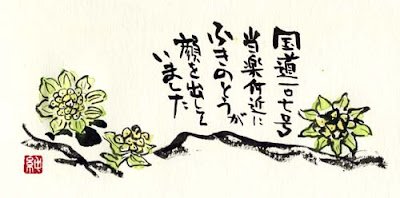 国道一〇七号
当楽付近に
ふきのとうが
顔を出して
いました
純